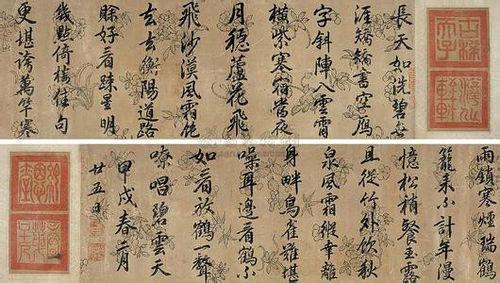 長天如洗碧
涯矯矯書空鴈
字斜陣入雲霄
橫紫塞宿當夜
月穩蘆花飛
飛沙漠風霜飽
去去衡陽道路
賒好看疎星明
幾點倚樓佳句
更堪誇萬竿寒
雨鎖寒煙瑞鶴
籠来不計年漫
憶松梢餐玉露
且從竹外飲秋
泉風霜縱幸離
身畔鳥雀難堪
噪耳邊看鶴不
如看放鶴一聲
嘹唱碧雲天
甲戌春二月
廿五日